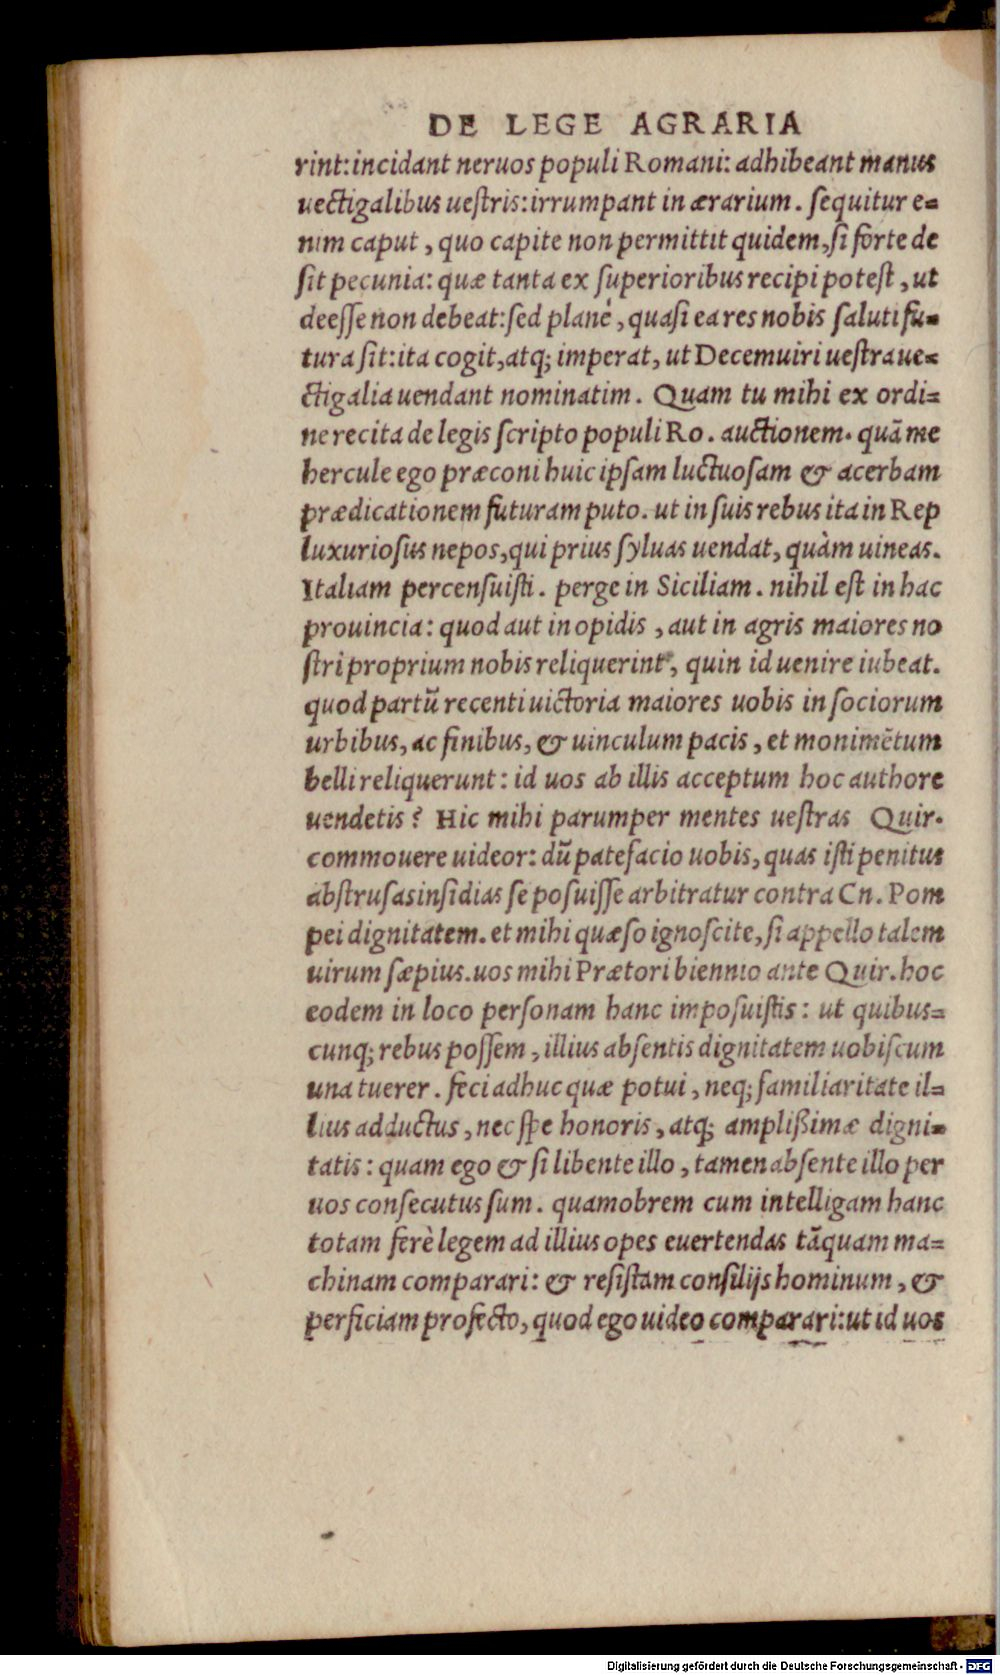 DE LEGE AGRARIA
rint: incidant neruos populi Romani: adhibeant manus
uectigalibus uestris: irrumpant in ærarium. sequitur e=
nim caput, quo capite non permittit quidem, si forte de
sit pecunia: quæ tanta ex superioribus recipi potest, ut
deesse non debeat: sed planè, quasi ea res nobis saluti fu=
tura sit: ita cogit, atq; imperat, ut Decemuiri uestra ue=
ctigalia uendant nominatim. Quam tu mihi ex ordi=
ne recita de legis scripto populi Ro. auctionem. quā me
hercule ego præconi huic ipsam luctuosam & acerbam
prædicationem futuram puto. ut in suis rebus ita in Rep
luxuriosus nepos, qui prius syluas uendat, quàm uineas.
Italiam percensuisti. perge in Siciliam. nihil est in hac
prouincia: quod aut in opidis, aut in agris maiores no
stri proprium nobis reliquerint, quin id uenire iubeat.
quod partū recenti uictoria maiores uobis in sociorum
urbibus, ac finibus, & uinculum pacis, et monimētum
belli reliquerunt: id uos ab illis acceptum hoc authore
uendetis? Hic mihi parumper mentes uestras Quir.
commouere uideor: dū patefacio uobis, quas isti penitus
abstrusas insidias se posuisse arbitratur contra Cn. Pom
pei dignitatem. et mihi quæso ignoscite, si appello talem
uirum sæpius. uos mihi Prætori biennio ante Quir. hoc
eodem in loco personam hanc imposuistis: ut quibus=
cunq; rebus possem, illius absentis dignitatem uobiscum
una tuerer. feci adhuc quæ potui, neq; familiaritate il=
lius adductus, nec spe honoris, atq; amplißimæ digni=
tatis: quam ego & si libente illo, tamen absente illo per
uos consecutus sum. quamobrem cum intelligam hanc
totam ferè legem ad illius opes euertendas tāquam ma=
chinam comparari: & resistam consilijs hominum, &
perficiam profecto, quod ego uideo comparari: ut id uos
Digitalisierung gefördert durch die Deutsche Forschungsgemeinschaft - DFG